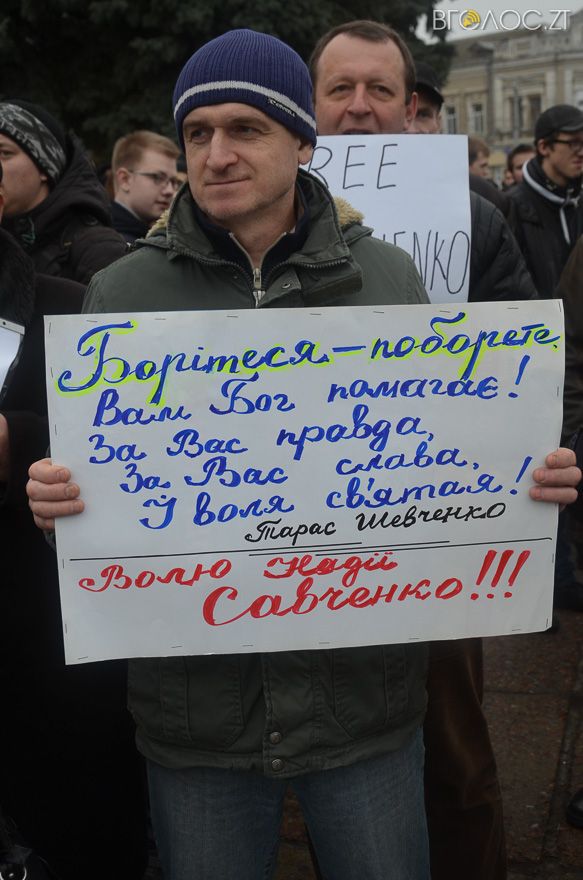 ВГОЛОС.ZT
REE
ENKO
Борітеся – поборете,
Вам Бог помагає!
За Вас правда,
За Вас слава,
Й воля св'ятая!
Тарас Шевченко
Волю Надії
Савченко!!!